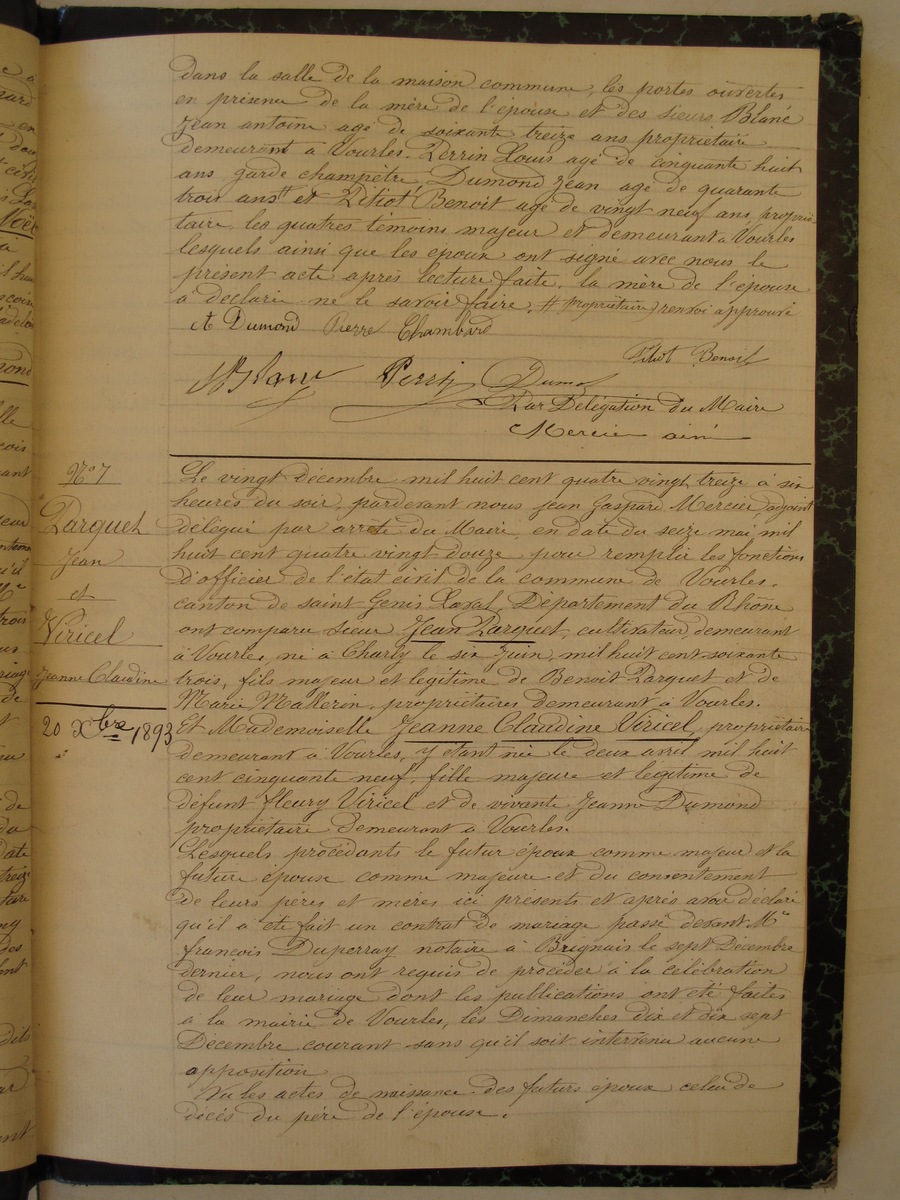 Dans la salle de la maison commune, les portes ouvertes
en présence de la mère de l'épouse et des sieurs Blanc
Jean antoine agé de soixante treize ans propriétaire
demeurant à Vourles. Perrin Louis agé de cinquante huit
ans garde champêtre Dumond Jean age de quarante
trois ans # et Pitiot Benoit age de vingt neuf ans, proprié
taire les quatres témoins majeur et demeurant à Vourles
lesquels ainsi que les époux ont signé avec nous le
présent acte après lecture faite. la mère de l'épouse
à déclaré ne le savoir faire. # (propriétaire) renvoi approuvé
Dumond Pierre Chambard
Pitiot Benoit
Blanc Perrin Dumo
Par Délégation du Maire
Mercier ainé
N° 7
Parquet
Jean
et
Viricel
Jeanne Claudine
20 Xbre 1893
Le vingt décembre mil huit cent quatre vingt treize à six
heures du soir, pardevant nous jean Gaspard Mercier adjoint
délégué par arrêté du Maire, en date du seize mai, mil
huit cent quatre vingt douze pour remplir les fonctions
D'officier de l'état civil de la commune de Vourles.
canton de saint Genis Laval, Département du Rhône
ont comparu sieur Jean Parquet, cultivateur demeurant
à Vourles, né à Charly le six Juin, mil huit cent soixante
trois, fils majeur et légitime de Benoit Parquet et de
Marie propriétaires demeurant à Vourles.
Et Mademoiselle Jeanne Claudine Viricel, propriétaire
demeurant à Vourles, y étant née le deux avril mil huit
cent cinquante neuf, fille majeure et légitime de
défunt fleury Viricel et de vivante Jeanne Dumond
propriétaire demeurant à Vourles.
Lesquels procédants le futur époux comme majeur et la
future épouse comme majeure et du consentement
de leurs pères et mères ici présents et après avoir déclaré
qu'il à été fait un contrat de mariage passé devant Me
françois Duperray notaire à Brignais le sept Décembre
dernier, nous ont requis de procéder à la célébration
de leur mariage dont les publications ont été faites
à la mairie de Vourles, les Dimanches dix et dix sept
Décembre courant sans qu'il soit intervenu aucune
opposition
Vu les actes de naissance des futurs époux celui de
décès du père de l'épouse.